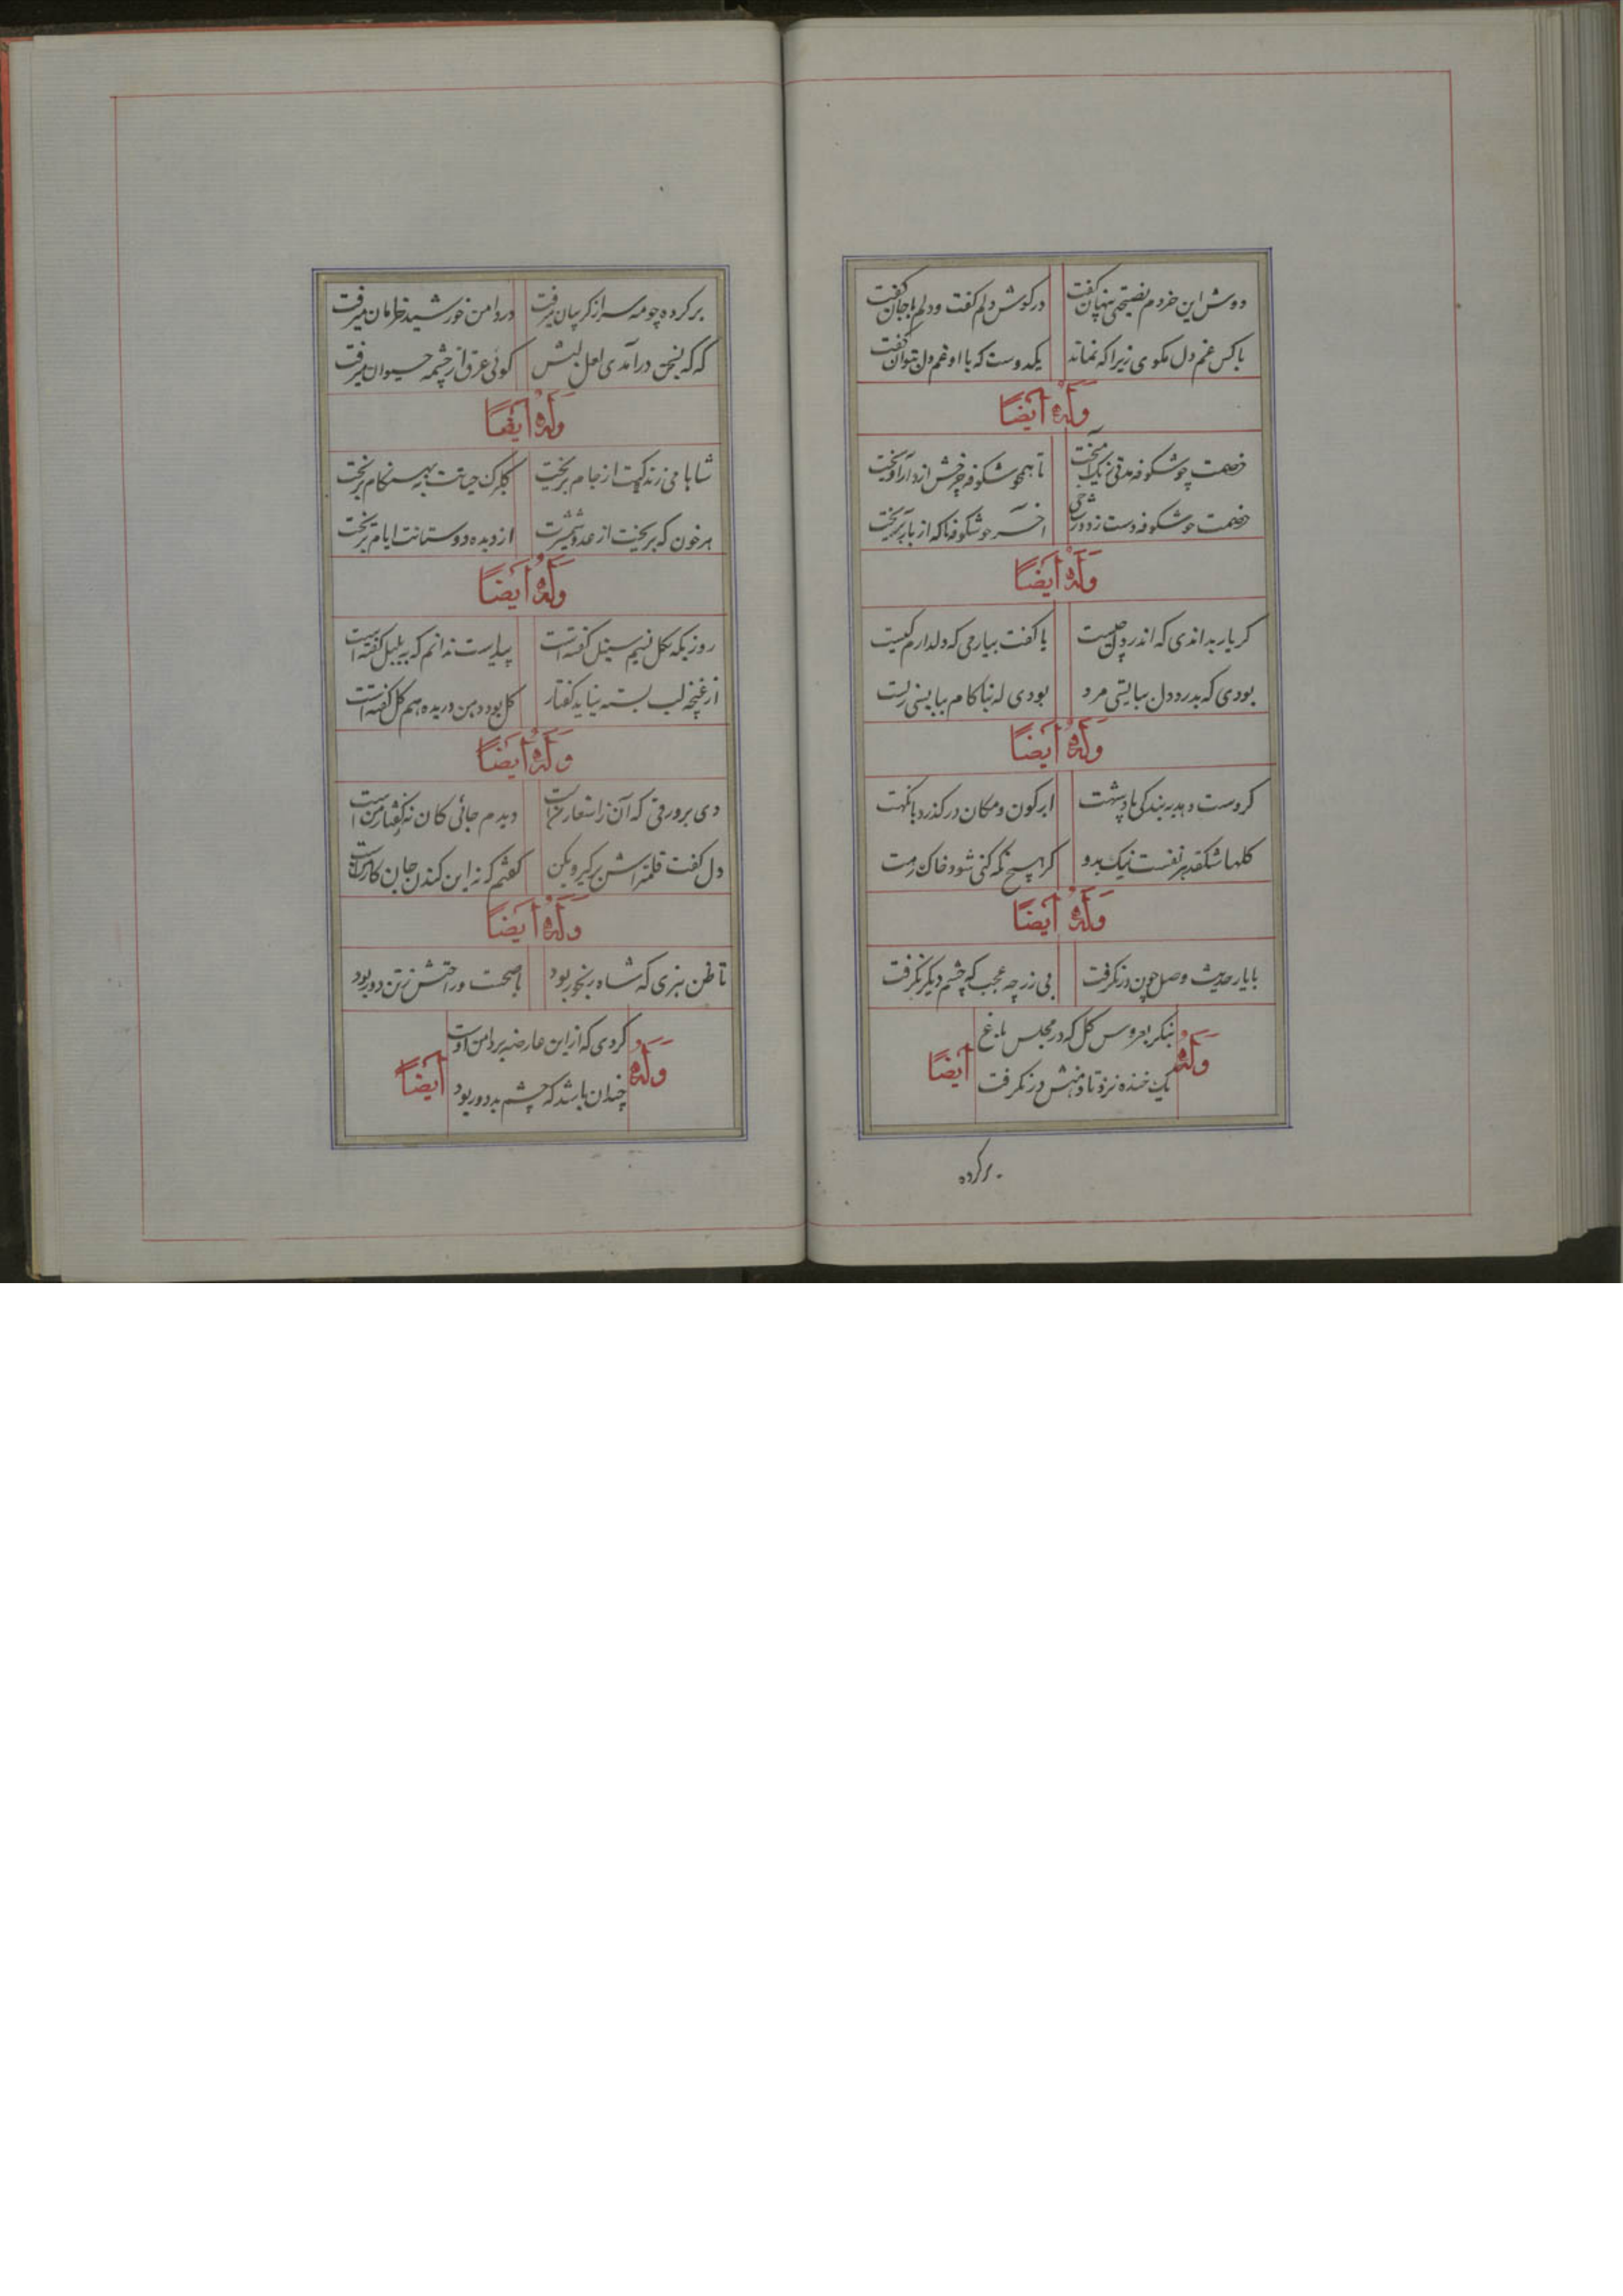 دوش این خردم نصیحتی پنهان گفت در گوش دلم گفت و دلم با جان گفت
با کس غم دل مگوی زیرا که نماند یکدوست که با او غم دل بتوان گفت
وَلَهُ أیضاً
خصمت چو شکوفه مدتی رنگ آمیخت تا همچو شکوفه چرخش از دار آویخت
خصمت چو شکوفه دست زد در آخر چو شکوفه خاک از بار بریخت
وَلَهُ أیضاً
کر یار بداندی که اندر دل چیست یا کفت بیارمی که دلدارم کیست
بودی که بدرد دل ببایستی مرد بودی که بناکام ببایستی زیست
وَلَهُ أیضاً
کر وست دهد بندکی بادبهشت از کون و مکان در کذرد بانکهت
کلها شکفد بر نفست نیک بدو کر هیچ نکه کنی شود خاک رهت
وَلَهُ أیضاً
با یار حدیث وصل چون در نکرفت بی زر چه عجب که چشم دیکر نکرفت
وَلَهُ بنکر بعروس کل که در مجلس باغ أیضاً
یک خنده نزد تا دهنش زر نکرفت
برکرده
برکرده چو مه سر از کریبان میرفت در دامن خورشید خرامان میرفت
که که بسخن در آمدی لعل لبش کوئی عرق از چشمه حیوان میرفت
وَلَهُ أیضاً
شاها می زندکیت از جام بریخت کلبرک حیاتت نه بهنکام بریخت
هر خون که بریخت از عدو شمشیرت از دیده دوستانت ایام بریخت
وَلَهُ أیضاً
روزیکه بکل نسیم سنبل کفته است پیداست ندانم که به بلبل کفته است
از غنچه لب بسته نیاید کفتار کل بود دهن دریده هم کل کفته است
وَلَهُ أیضاً
دی بر ورقی که آن ز اشعار من است دیدم جائی کان نه کفتار من است
دل کفت قلمتراش برکیر و بکن کفتم که نه این کندن جان کار من است
وَلَهُ أیضاً
تا ظن نبری که شاه رنجور بود یا صحت و راحتش ز تن دور بود
وَلَهُ کردی که از این عارضه بر دامن اوست أیضاً
چندان باشد که چشم بد دور بود